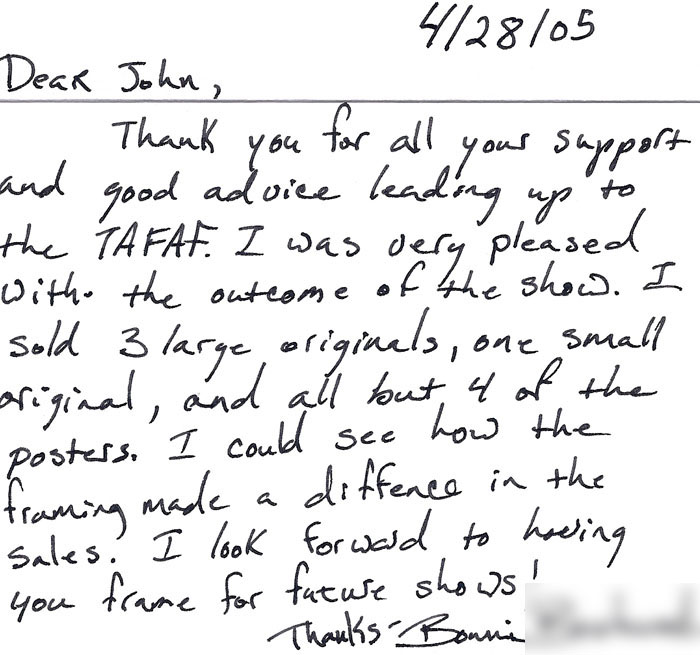 4/28/05
Dear John,
Thank you for all your support
and good advice leading up to
the TAFAF. I was very pleased
with the outcome of the show. I
sold 3 large originals, one small
original, and all but 4 of the
posters. I could see how the
framing made a diffence in the
sales. I look forward to having
you frame for future shows!
Thanks - Bonnie